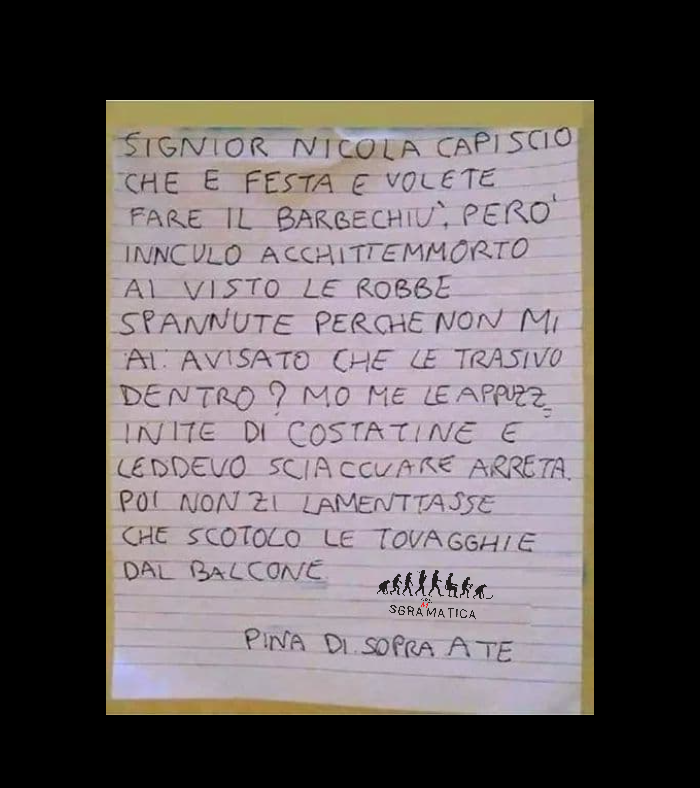 SIGNIOR NICOLA CAPISCIO
CHE E FESTA E VOLETE
FARE IL BARBECHIÙ, PERO'
INNCULO ACCHITTEMMORTO
AI VISTO LE ROBBE
SPANNUTE PERCHE NON MI
AI AVISATO CHE LE TRASIVO
DENTRO? MO ME LE APPUZZ
INITE DI COSTATINE E
LEDDEVO SCIACCUARE ARRETA.
POI NON ZI LAMENTTASSE
CHE SCOTOLO LE TOVAGGHIE
DAL BALCONE
SGRAMATICA
PINA DI SOPRA A TE